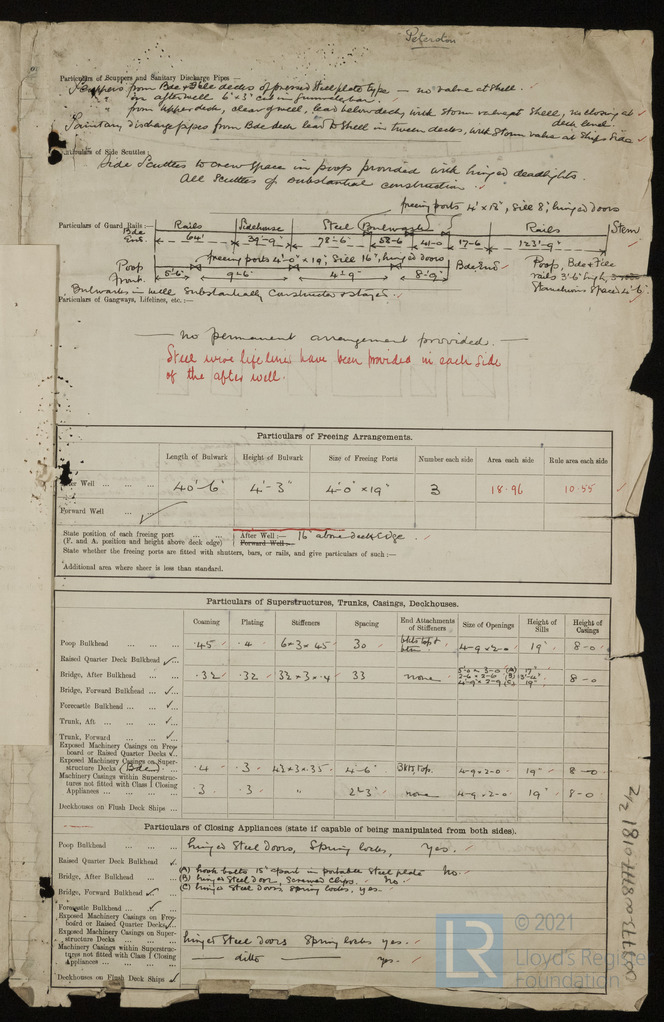 Peterston
Particulars of Scuppers and Sanitary Discharge Pipes —
Scuppers from Bdge & decks of pressed steel plate type — no valve at shell.
in afterwell 6" x 3" cut in gunwale bar.
from upper deck, clear of well, lead below deck, with storm valve at shell, in closing at deck end
Sanitary discharge pipes from Bdge deck lead to shell in tween decks, with storm valve at ship's side
Particulars of Side Scuttles:
Side Scuttles to crew space in poop provided with hinged deadlights.
All Scuttles of substantial construction.
freeing ports 4' x 18", sill 8", hinged doors
Particulars of Guard Rails:—
Rails Sidehouse Steel Bulwark Rails Stem
Bdge End. 64' 39'-9" 78'-6" 58-6 41-0 17-6 123'-9"
freeing ports 4'-0" x 19", Sill 16", hinged doors
Poop Front. 5'-6" 9-6" 4'-9" 8'-9" Bdge End
Poop, Bdge & Fcle rails 3'-6" high,
Stanchions spaced 4'-6"
Bulwarks in well substantially constructed & stayed.
Particulars of Gangways, Lifelines, etc.:—
— no permanent arrangement provided. —
Steel wire life lines have been provided in each side
of the after well.
Particulars of Freeing Arrangements.
Length of Bulwark Height of Bulwark Size of Freeing Ports Number each side Area each side Rule area each side
Well 40'-6" 4'-3" 4'-0" x 19" 3 18.96 10.55
Forward Well
State position of each freeing port (F. and A. position and height above deck edge) After Well:— 16" above deck edge
Forward Well:—
State whether the freeing ports are fitted with shutters, bars, or rails, and give particulars of such:—
Additional area where sheer is less than standard.
Particulars of Superstructures, Trunks, Casings, Deckhouses.
Coaming Plating Stiffeners Spacing End Attachments of Stiffeners Size of Openings Height of Sills Height of Casings
Poop Bulkhead .45 .4 6 x 3 x 45 30 4-9 x 2-0 19" 8-0
Raised Quarter Deck Bulkhead
Bridge, After Bulkhead .32 .32 3½ x 3 x .4 33 none 5'-0 x 3-0 (A) 17" 8-0
2-6 x 2-6 (B)
4'-9" x 2-9 (C) 19"
Bridge, Forward Bulkhead
Forecastle Bulkhead
Trunk, Aft
Trunk, Forward
Exposed Machinery Casings on Freeboard or Raised Quarter Decks
Exposed Machinery Casings on Superstructure Decks (Bdge) .4 .3 4½ x 3 x .35 4'-6" Bkts top. 4-9 x 2-0 19" 8-0
Machinery Casings within Superstructures not fitted with Class I Closing Appliances .3 .3 " 2'-3" none 4-9 x 2-0 19" 8-0
Deckhouses on Flush Deck Ships
Particulars of Closing Appliances (state if capable of being manipulated from both sides).
Poop Bulkhead hinged Steel Doors, Spring locks, Yes.
Raised Quarter Deck Bulkhead
Bridge, After Bulkhead (A) hook bolts 15" apart in portable steel plate No.
(B) hinged steel door, screwed clips. No.
(C) hinged steel doors spring locks, yes.
Bridge, Forward Bulkhead
Forecastle Bulkhead
Exposed Machinery Casings on Freeboard or Raised Quarter Decks
Exposed Machinery Casings on Superstructure Decks hinged Steel doors Spring locks yes.
Machinery Casings within Superstructures not fitted with Class I Closing Appliances — ditto — yes.
Deckhouses on Flush Deck Ships
© 2021
Lloyd's Register
Foundation
LR